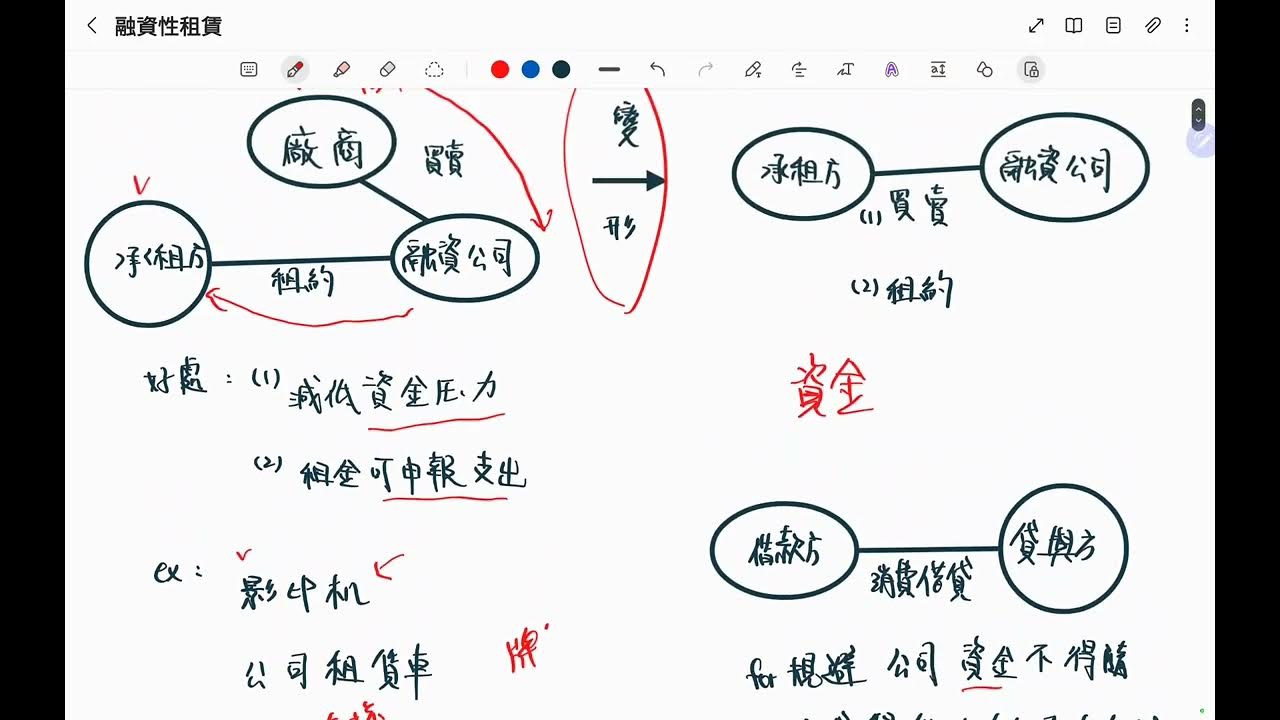 融資性租賃
廠商
買賣
承租方
租約
融資公司
變
形
承租方
融資公司
(1) 買賣
(2) 租約
好處：(1) 減低資金压力
(2) 租金可申報支出
資金
ex：影印机
公司租賃車
牌
借款方
消費借貸
貸與方
for 規避 公司 資金不得